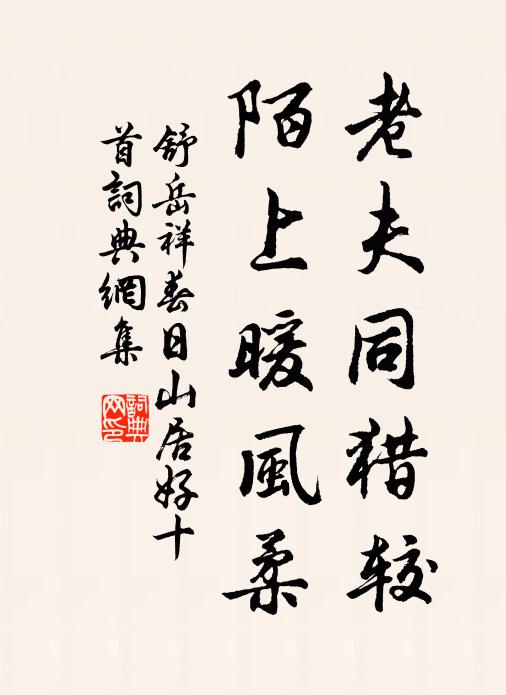 老夫同猎较
陌上暖風柔
舒岳祥春日山居好十
首詞典網集
詞典网印